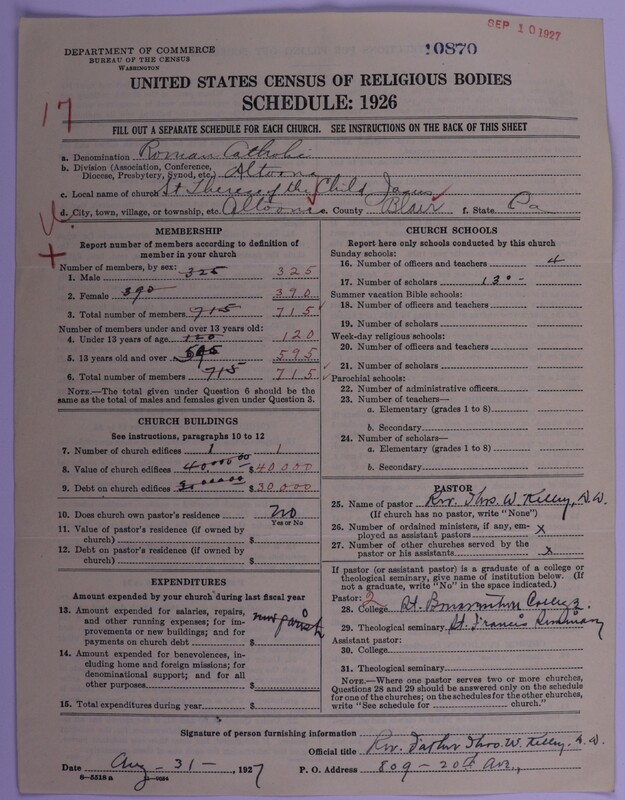 SEP 10 1927
10870
DEPARTMENT OF COMMERCE
BUREAU OF THE CENSUS
WASHINGTON
UNITED STATES CENSUS OF RELIGIOUS BODIES
SCHEDULE: 1926
17
FILL OUT A SEPARATE SCHEDULE FOR EACH CHURCH. SEE INSTRUCTIONS ON THE BACK OF THIS SHEET
a. Denomination Roman Catholic
b. Division (Association, Conference, Diocese, Presbytery, Synod, etc.) Altoona
c. Local name of church St Therese of the Child Jesus
d. City, town, village, or township, etc. Altoona e. County Blair f. State Pa
MEMBERSHIP
Report number of members according to definition of member in your church
Number of members, by sex:
1. Male 325 325
2. Female 390 390
3. Total number of members 715 715
Number of members under and over 13 years old:
4. Under 13 years of age 120 120
5. 13 years old and over 595 595
6. Total number of members 715 715
NOTE.—The total given under Question 6 should be the same as the total of males and females given under Question 3.
CHURCH BUILDINGS
See instructions, paragraphs 10 to 12
7. Number of church edifices 1 1
8. Value of church edifices 40,000.00 $40000
9. Debt on church edifices $30000
10. Does church own pastor's residence No
Yes or No
11. Value of pastor's residence (if owned by church) $
12. Debt on pastor's residence (if owned by church) $
EXPENDITURES
Amount expended by your church during last fiscal year
13. Amount expended for salaries, repairs, and other running expenses; for improvements or new buildings; and for payments on church debt $ new parish
14. Amount expended for benevolences, including home and foreign missions; for denominational support; and for all other purposes $
15. Total expenditures during year $
CHURCH SCHOOLS
Report here only schools conducted by this church
Sunday schools:
16. Number of officers and teachers 4
17. Number of scholars 130
Summer vacation Bible schools:
18. Number of officers and teachers
19. Number of scholars
Week-day religious schools:
20. Number of officers and teachers
21. Number of scholars
Parochial schools:
22. Number of administrative officers
23. Number of teachers—
a. Elementary (grades 1 to 8)
b. Secondary
24. Number of scholars—
a. Elementary (grades 1 to 8)
b. Secondary
PASTOR
25. Name of pastor Rev. Thos. W. Kelley,
(If church has no pastor, write "None")
26. Number of ordained ministers, if any, employed as assistant pastors x
27. Number of other churches served by the pastor or his assistants x
If pastor (or assistant pastor) is a graduate of a college or theological seminary, give name of institution below. (If not a graduate, write "No" in the space indicated.)
Pastor: 2
28. College St. Bonaventure College.
29. Theological seminary St. Francis Seminary
Assistant pastor:
30. College
31. Theological seminary
NOTE.—Where one pastor serves two or more churches, Questions 28 and 29 should be answered only on the schedule for one of the churches; on the schedules for the other churches, write "See schedule for church."
Signature of person furnishing information
Official title Rev. Father Thos. W. Kelley,
Date Aug-31-, 1927 P. O. Address 809-20th Ave.,
8-5518a